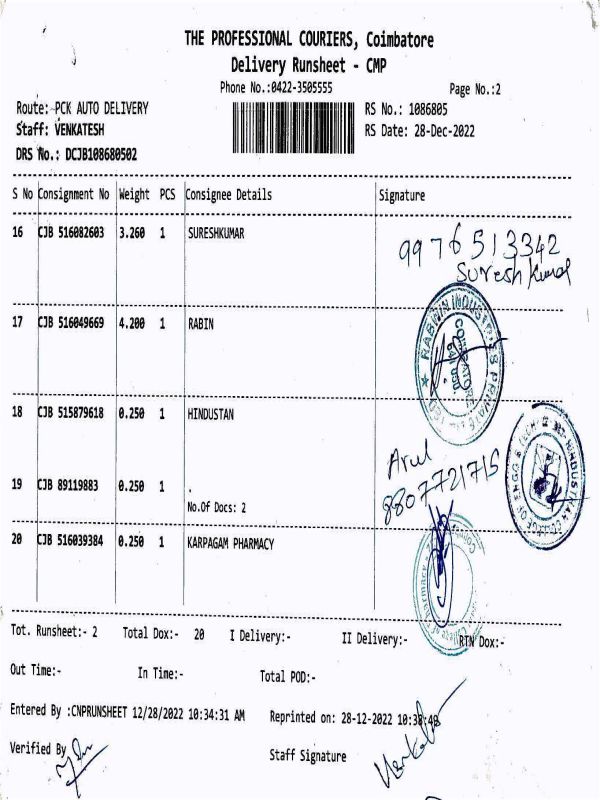 THE PROFESSIONAL COURIERS, Coimbatore
Delivery Runsheet - CMP
Phone No.:0422-3505555 Page No.:2
Route: PCK AUTO DELIVERY RS No.: 1086805
Staff: VENKATESH RS Date: 28-Dec-2022
DRS No.: DCJB108680502
S No Consignment No Weight PCS Consignee Details Signature
16 CJB 516082603 3.260 1 SURESHKUMAR
9976513342
Suresh Kumar
17 CJB 516049669 4.200 1 RABIN
INDUSTRIES PRIVATE
COIMBATORE
18 CJB 515879618 0.250 1 HINDUSTAN
HINDUSTAN COLLEGE OF ENGG & TECH
Arul
8807721715
19 CJB 89119883 0.250 1 .
No.Of Docs: 2
20 CJB 516039384 0.250 1 KARPAGAM PHARMACY
College of Pharmacy
Tot. Runsheet:- 2 Total Dox:- 20 I Delivery:- II Delivery:- RTN Dox:-
Out Time:- In Time:- Total POD:-
Entered By :CNPRUNSHEET 12/28/2022 10:34:31 AM Reprinted on: 28-12-2022 10:38:48
Verified By
Staff Signature
Venkatesh